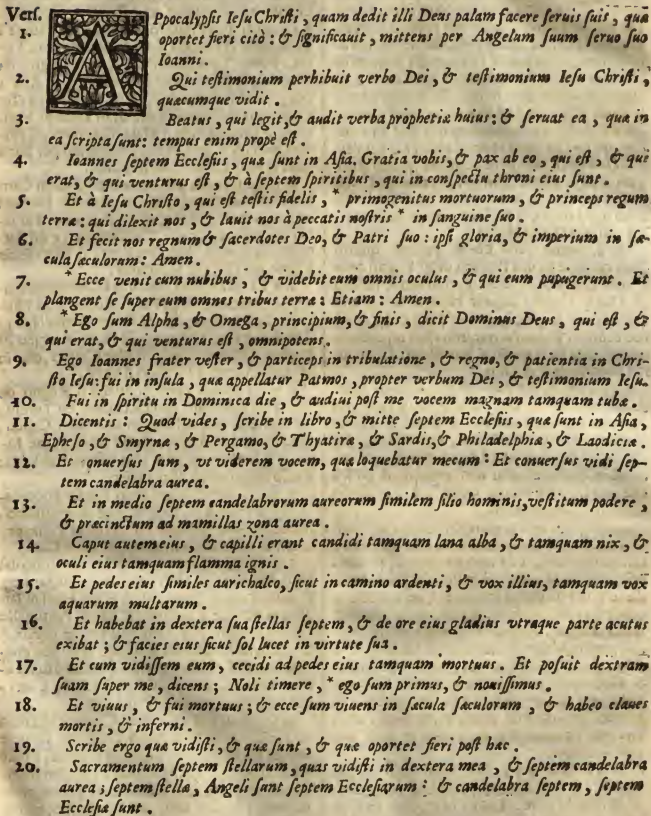 Vers. APpocalypsis Iesu Christi, quam dedit illi Deus palam facere seruis suis, quæ
1. oportet fieri citò: & significauit, mittens per Angelum suum seruo suo
Ioanni.
2. Qui testimonium perhibuit verbo Dei, & testimonium Iesu Christi,
quæcumque vidit.
3. Beatus, qui legit, & audit verba prophetiæ huius: & seruat ea, quæ in
ea scripta sunt: tempus enim propè est.
4. Ioannes septem Ecclesiis, quæ sunt in Asia. Gratia vobis, & pax ab eo, qui est, & qui
erat, & qui venturus est, & à septem spiritibus, qui in conspectu throni eius sunt.
5. Et à Iesu Christo, qui est testis fidelis, * primogenitus mortuorum, & princeps regum
terræ: qui dilexit nos, & lauit nos à peccatis nostris * in sanguine suo.
6. Et fecit nos regnum & sacerdotes Deo, & Patri suo: ipsi gloria, & imperium in sæ-
cula sæculorum: Amen.
7. * Ecce venit cum nubibus, & videbit eum omnis oculus, & qui eum pupugerunt. Et
plangent se super eum omnes tribus terræ: Etiam: Amen.
8. * Ego sum Alpha, & Omega, principium, & finis, dicit Dominus Deus, qui est, &
qui erat, & qui venturus est, omnipotens.
9. Ego Ioannes frater vester, & particeps in tribulatione, & regno, & patientia in Chri-
sto Iesu: fui in insula, quæ appellatur Patmos, propter verbum Dei, & testimonium Iesu.
10. Fui in spiritu in Dominica die, & audiui post me vocem magnam tamquam tubæ.
11. Dicentis: Quod vides, scribe in libro, & mitte septem Ecclesiis, quæ sunt in Asia,
Epheso, & Smyrnæ, & Pergamo, & Thyatiræ, & Sardis, & Philadelphiæ, & Laodiciæ.
12. Et onuersus sum, vt viderem vocem, quæ loquebatur mecum: Et conuersus vidi sep-
tem candelabra aurea.
13. Et in medio septem candelabrorum aureorum similem filio hominis, vestitum podere,
& præcinctum ad mamillas zona aurea.
14. Caput autem eius, & capilli erant candidi tamquam lana alba, & tamquam nix, &
oculi eius tamquam flamma ignis.
15. Et pedes eius similes aurichalco, sicut in camino ardenti, & vox illius, tamquam vox
aquarum multarum.
16. Et habebat in dextera sua stellas septem, & de ore eius gladius vtraque parte acutus
exibat; & facies eius sicut sol lucet in virtute sua.
17. Et cum vidissem eum, cecidi ad pedes eius tamquam mortuus. Et posuit dextram
suam super me, dicens; Noli timere, * ego sum primus, & nouissimus.
18. Et viuus, & fui mortuus; & ecce sum viuens in sæcula sæculorum, & habeo claues
mortis, & inferni.
19. Scribe ergo quæ vidisti, & quæ sunt, & quæ oportet fieri post hæc.
20. Sacramentum septem stellarum, quas vidisti in dextera mea, & septem candelabra
aurea; septem stellæ, Angeli sunt septem Ecclesiarum: & candelabra septem, septem
Ecclesiæ sunt.